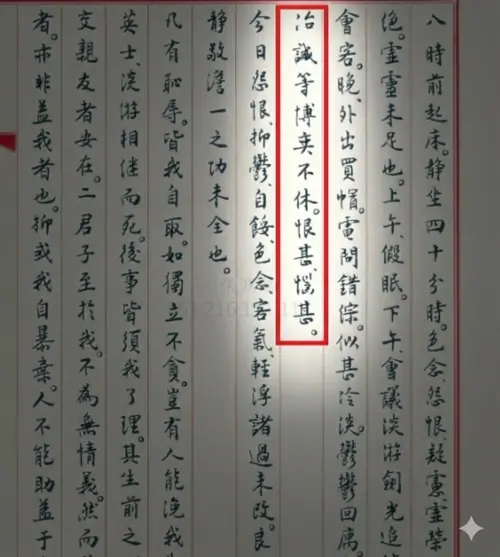 八時前起床。静坐四十分時。色念、怨恨、疑憲靈榮
絶。靈靈未足也。上午、假眠。下午、會議淡游劍光追
會客。晚、外出買帽。電問錯綜。似甚冷淡。鬱鬱回寓。
治誠等博奕不休。恨甚惱甚。
今日怨恨、抑鬱、自餒、色念、客氣、輕浮諸過未改。良
静敬澹一之功未全也。
凡有恥辱。皆我自取。如獨立不貪。豈有人能漁我
英士、淡游相继而死。後事皆須我了理。其生前之
交親友者安在。二君子至於我。不為無情義。然而
者。亦非益我者也。抑或我自暴棄。人不能助益于